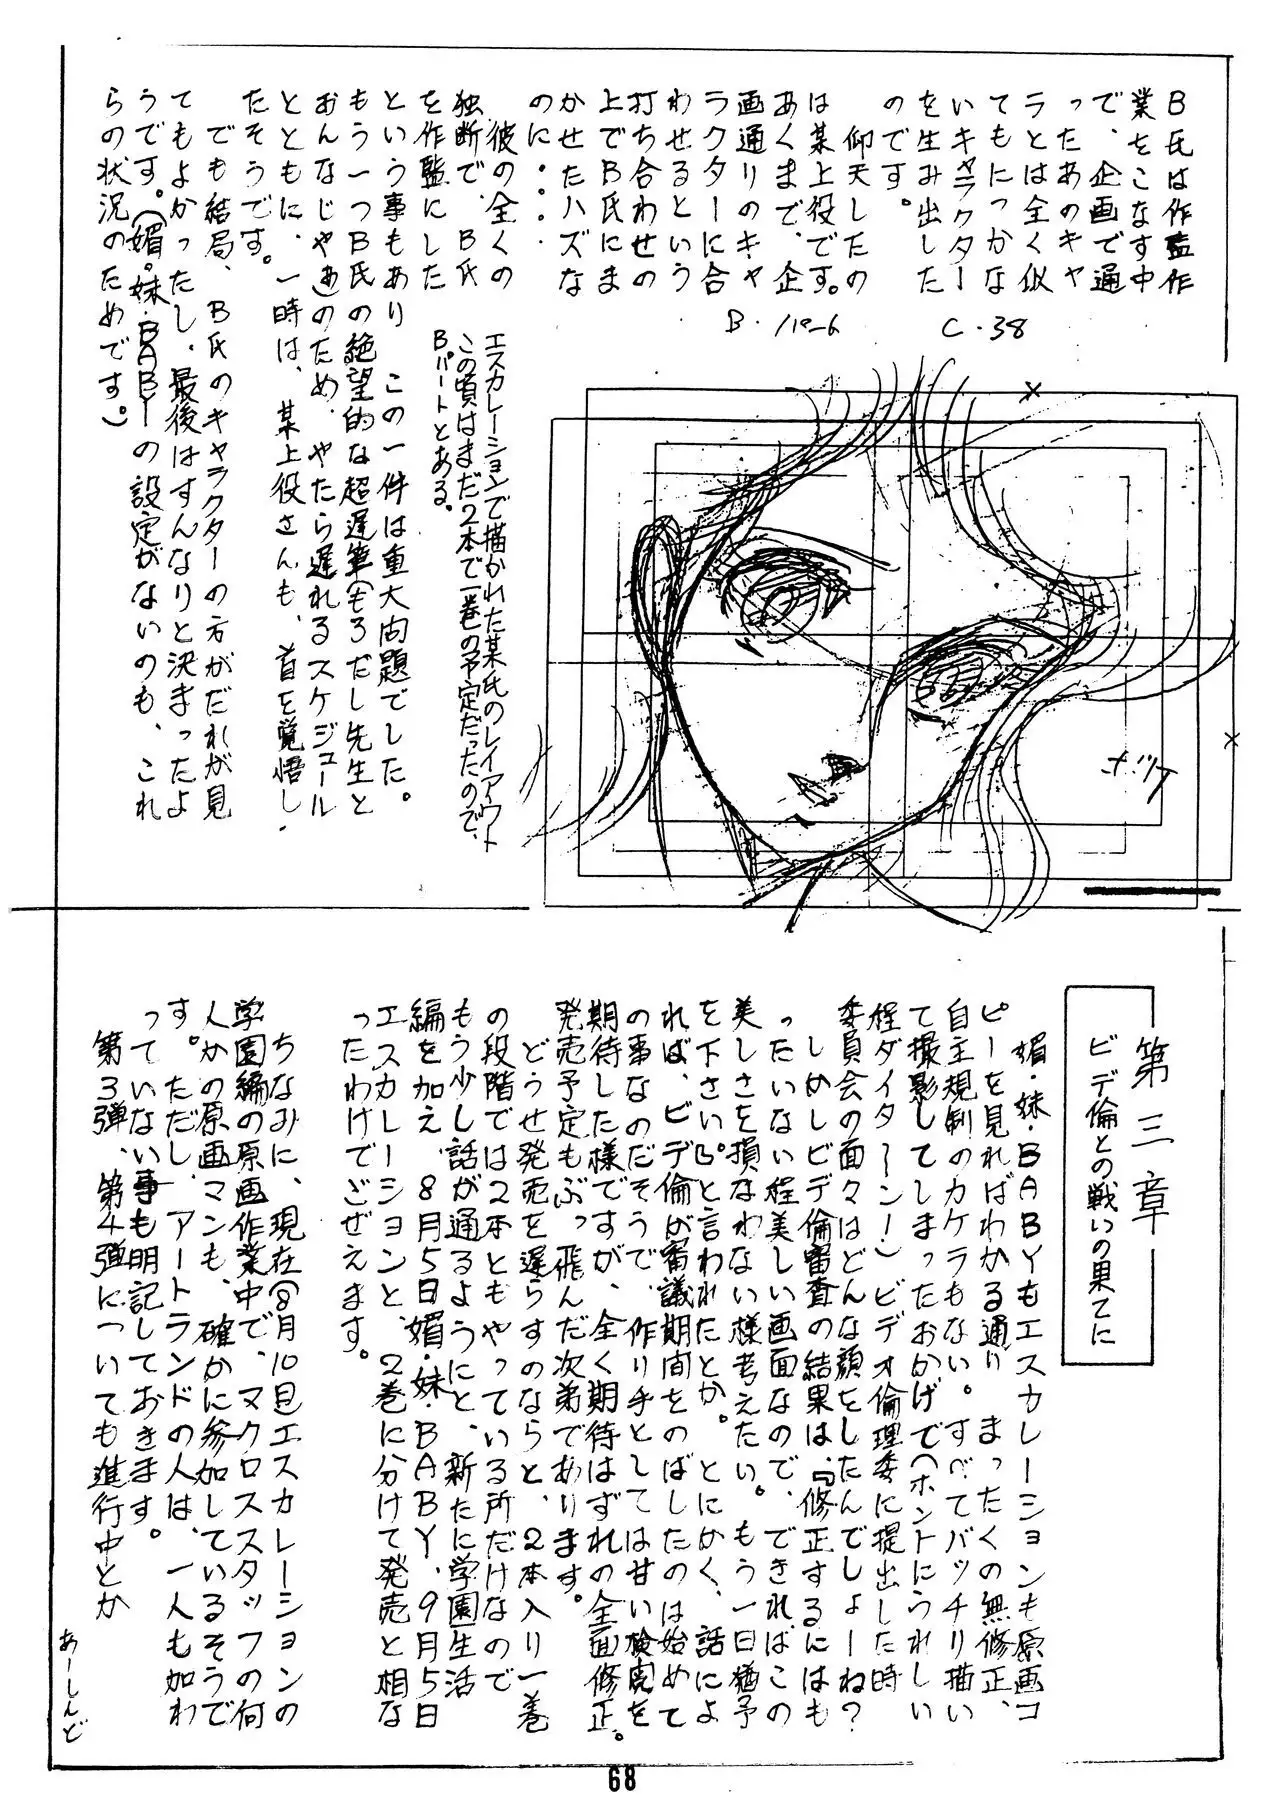 B氏は作監作
業をこなす中
で、企画で通
ったあのキャ
ラとは全く似
てもにつかな
いキャラクター
を生み出した
のです。
仰天したの
は某上役です。
あくまで、企
画通りのキャ
ラクターに合
わせるという
打ち合わせの
上でB氏にま
かせたハズな
のに・・・・
彼の全くの
独断で、B氏
を作監にした
という事もあり この一件は重大問題でした。
もう一つB氏の絶望的な超遅筆(もろだし先生と
おんなじやぁ)のため、やたら遅れるスケジュール
とともに、一時は、某上役さんも、首を覚悟し
たそうです。
でも結局、B氏のキャラクターの方がだれが見
てもよかったし、最後はすんなりと決まったよ
うです。(媚・妹・BABYの設定がないのも、これ
らの状況のためです。)
B.
C.38
エスカレーションで描かれた某氏のレイアウト
この頃はまだ2本で一巻の予定だったので、
Bパートとある。
第三章
ビデ倫との戦いの果てに
媚・妹・BABYもエスカレーションも原画コ
ピーを見ればわかる通り まったくの無修正、
自主規制のカケラもない。すべてバッチリ描い
て撮影してしまったおかげで(ホントにうれしい
程ダイターン!)ビデオ倫理委に提出した時
委員会の面々はどんな顔をしたんでしょーね?
しかしビデ倫審査の結果は、『修正するにはも
ったいない程美しい画面なので、できればこの
美しさを損なわない様考えたい。もう一日猶予
を下さい。』と言われたとか。とにかく、話によ
れば、ビデ倫が審議期間をのばしたのは始めて
の事なのだそうで、作り手としては甘い検閲を
期待した様ですが、全く期待はずれの全面修正。
発売予定もぶっ飛んだ次第であります。
どうせ発売を遅らすのならと、2本入り一巻
の段階では2本ともやっている所だけなので
もう少し話が通るようにと、新たに学園生活
編を加え、8月5日媚・妹・BABY、9月5日
エスカレーションと、2巻に分けて発売と相な
ったわけでござえます。
ちなみに、現在(8月10日)エスカレーションの
学園編の原画作業中で、マクロススタッフの何
人かの原画マンも、確かに参加しているそうで
す。ただし、アートランドの人は、一人も加わ
っていない事も明記しておきます。
第3弾、第4弾についても進行中とか
あーしんど
68